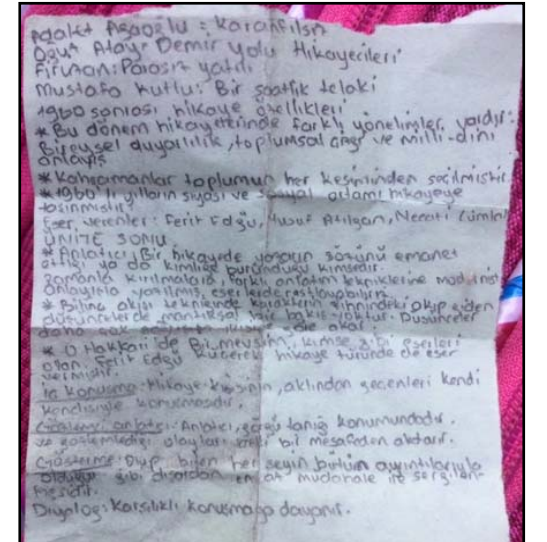 Adalet Ağaoğlu: Karanfilsiz
Oğuz Atay: Demir Yolu Hikayecileri
Firuzan: Parasız yatılı
Mustafa Kutlu: Bir saatlik telaki
1960 sonrası hikaye özellikleri
* Bu dönem hikayelerinde farklı yönelimler vardır:
Bireysel duyarlılık, toplumsal ve milli-dini
anlayış
* Kahramanlar toplumun her kesiminden seçilmiştir.
* 1960'lı yılların siyasi ve sosyal ortamı hikayeye
taşınmıştır.
Eser verenler: Ferit Edgü, Yusuf Atılgan, Necati
ÜNİTE SONU
* Anlatıcı, Bir hikayede yazarın sözünü emanet
ettiği ya da kimliğe büründüğü kimsedir.
zamanla kırılmalara, farklı anlatım tekniklerine modernist
anlayışla yazılmış eserlerde rastlayabiliriz.
* Bilinç akışı tekniğinde karakterin zihnindeki akıp giden
düşüncelerde mantıksal bir bakış yoktur. Düşünceler
daha çok akar.
* O Hakkari'de Bir mevsim, kimse gibi eserleri
olan Ferit Edgü küçürek hikaye türünde de eser
vermiştir.
İç konuşma: Hikaye kişisinin, aklından geçenleri kendi
kendisiyle konuşmasıdır.
Gözlemci anlatıcı: Anlatıcı, görgü tanığı konumundadır.
ve gözlemlediği olayları belli bir mesafeden aktarır.
Gösterme: Olup biten her şeyin bütün ayrıntılarıyla
olduğu gibi dışardan en az müdahale ile sergilen-
mesidir.
Diyalog: Karşılıklı konuşmaya dayanır.